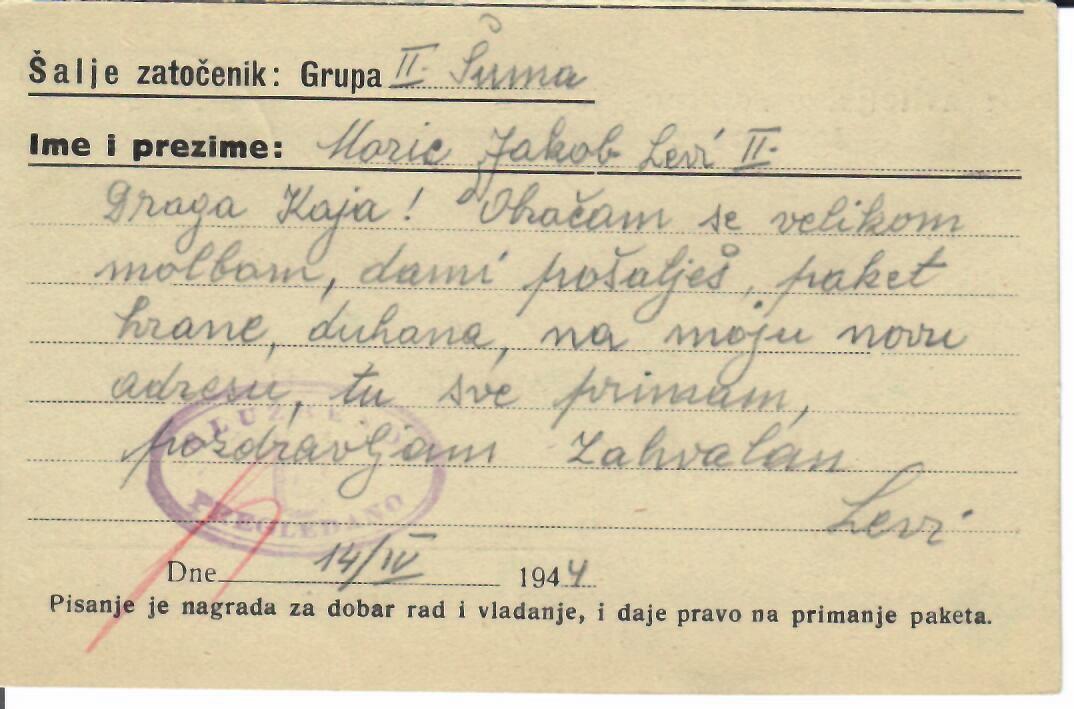 Šalje zatočenik: Grupa II. Šuma
Ime i prezime: Moric Jakob Levi II.
Draga Kaja! Obračam se velikom
molbom, dami pošalješ, paket
hrane, duhana, na moju novu
adresu, tu sve primam,
pozdravljam Zahvalan
Levi
SLUŽBENO
PREGLEDANO
Dne 14/IV 1944.
Pisanje je nagrada za dobar rad i vladanje, i daje pravo na primanje paketa.